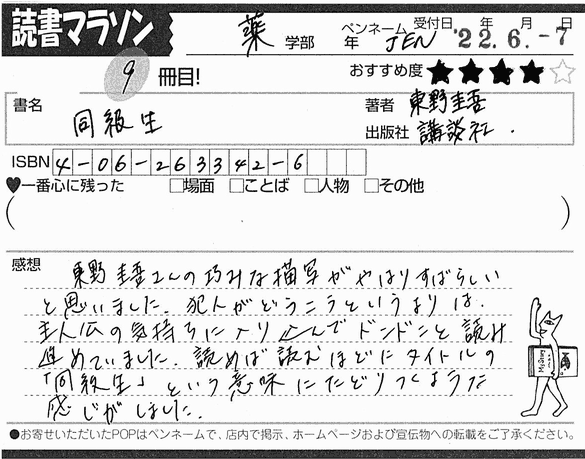 読書マラソン
薬 学部 年 ペンネーム JEN 受付日 '22.年6.月-7日
9 冊目! おすすめ度 ★★★★☆
書名 同級生
著者 東野圭吾
出版社 講談社.
ISBN 4-06-263342-6
♥一番心に残った □場面 □ことば □人物 □その他
( )
感想 東野圭吾さんの巧みな描写がやはりすばらしい
と思いました. 犯人がどうこうというよりは.
主人公の気持ちに入り込んでドンドンと読み
進めていました. 読めば読むほどにタイトルの
「同級生」という意味にたどりつくような
感じがしました.
●お寄せいただいたPOPはペンネームで、店内で掲示、ホームページおよび宣伝物への転載をご了承ください。